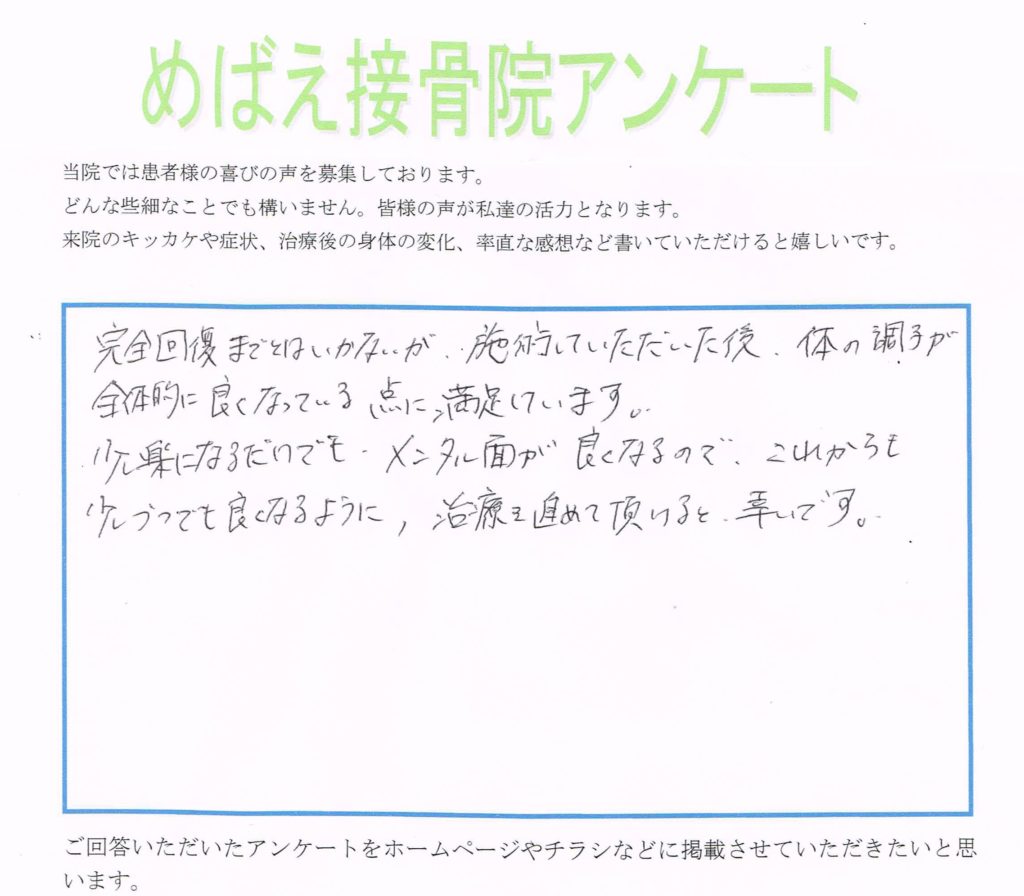 めばえ接骨院アンケート
当院では患者様の喜びの声を募集しております。
どんな些細なことでも構いません。皆様の声が私達の活力となります。
来院のキッカケや症状、治療後の身体の変化、率直な感想など書いていただけると嬉しいです。
完全回復まではいかないが、施術していただいた後、体の調子が
全体的に良くなっている点に満足しています。
少し楽になるだけでも、メンタル面が良くなるので、これからも
少しづつでも良くなるように，治療を進めて頂けると、幸いです。
ご回答いただいたアンケートをホームページやチラシなどに掲載させていただきたいと思
います。